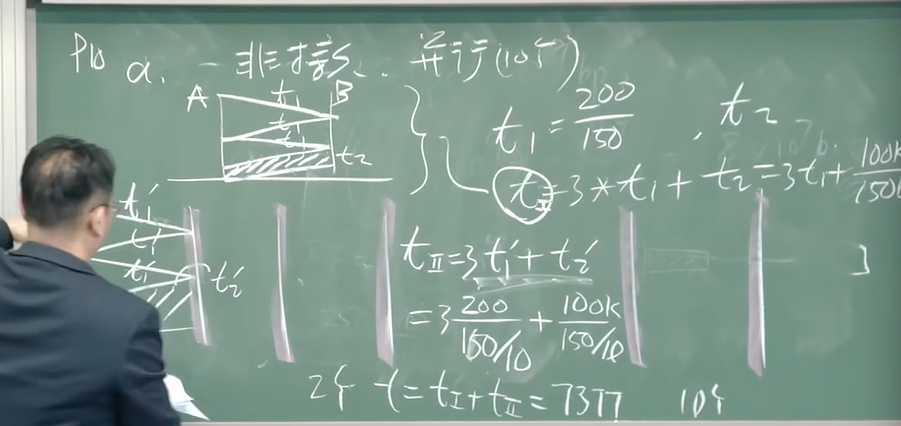 P10 a. - 非持续.. 并行(10个)
A t₁ B
t₁
t₁
t₂
t₁ = 200/150 , t₂
t_I = 3*t₁ + t₂ = 3t₁ + 100k/150
t₁′
t₁′
t₁′
t₂′
t_II = 3t₁′ + t₂′
= 3 200/(150/10) + 100k/(150/10)
2个 t = t_I + t_II = 7377 10个